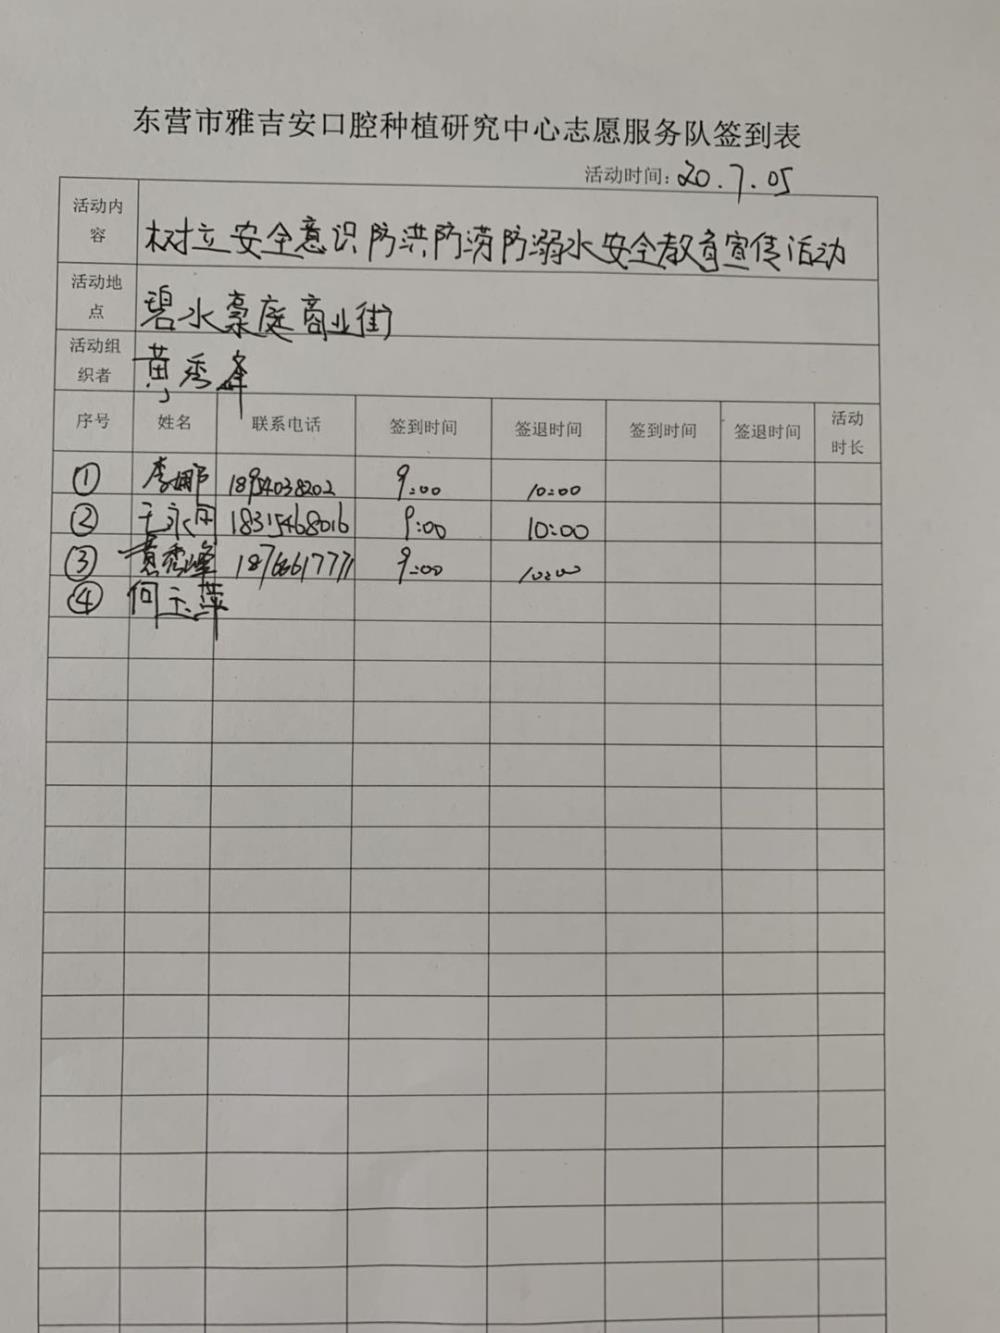 东营市雅吉安口腔种植研究中心志愿服务队签到表
活动时间：20.7.05
活动内容 树立安全意识防洪防涝防溺水安全教育宣传活动
活动地点 碧水豪庭商业街
活动组织者 黄秀峰
序号 姓名 联系电话 签到时间 签退时间 签到时间 签退时间 活动时长
① 李娜 18954038202 9:00 10:00
② 王永 18315468016 9:00 10:00
③ 黄秀峰 18766617771 9:00 10:00
④ 何玉萍